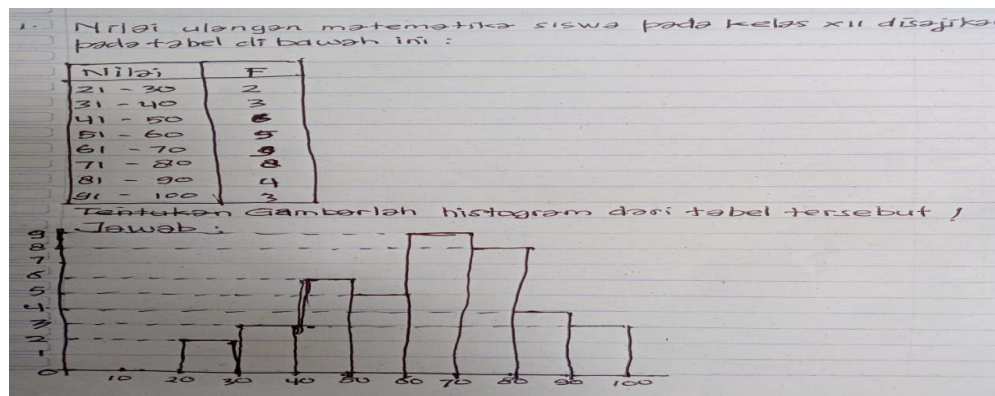 1. Nilai ulangan matematika siswa pada kelas XII disajika
pada tabel di bawah ini :
Nilai F
21 - 30 2
31 - 40 3
41 - 50 6
51 - 60 5
61 - 70 9
71 - 80 8
81 - 90 4
91 - 100 3
Tentukan Gambarlah histogram dari tabel tersebut !
Jawab :
9
8
7
6
5
4
3
2
1
0 10 20 30 40 50 60 70 80 90 100